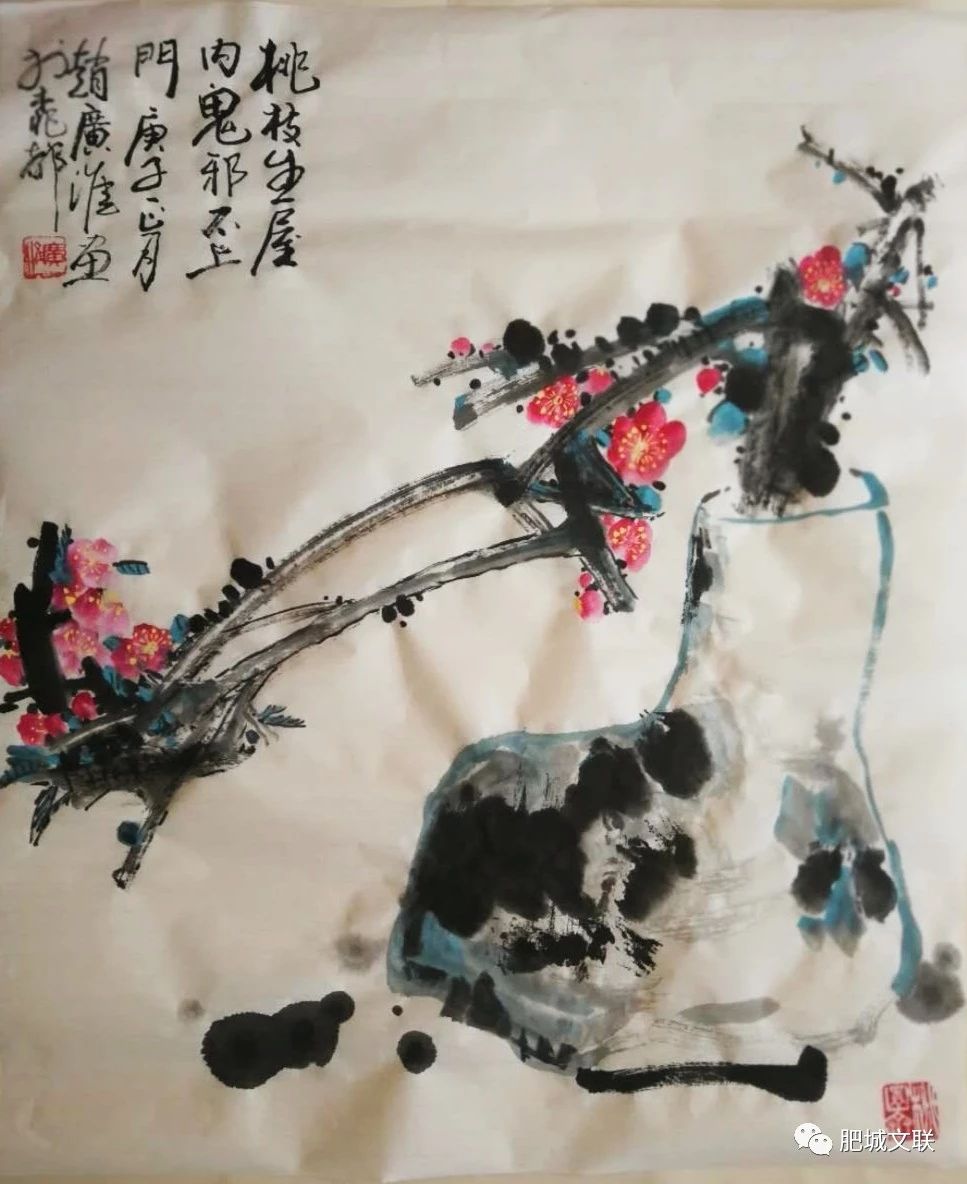 桃枝生屋
内鬼邪不上
門 庚子正月
趙廣淮画
於桃都
肥城文联